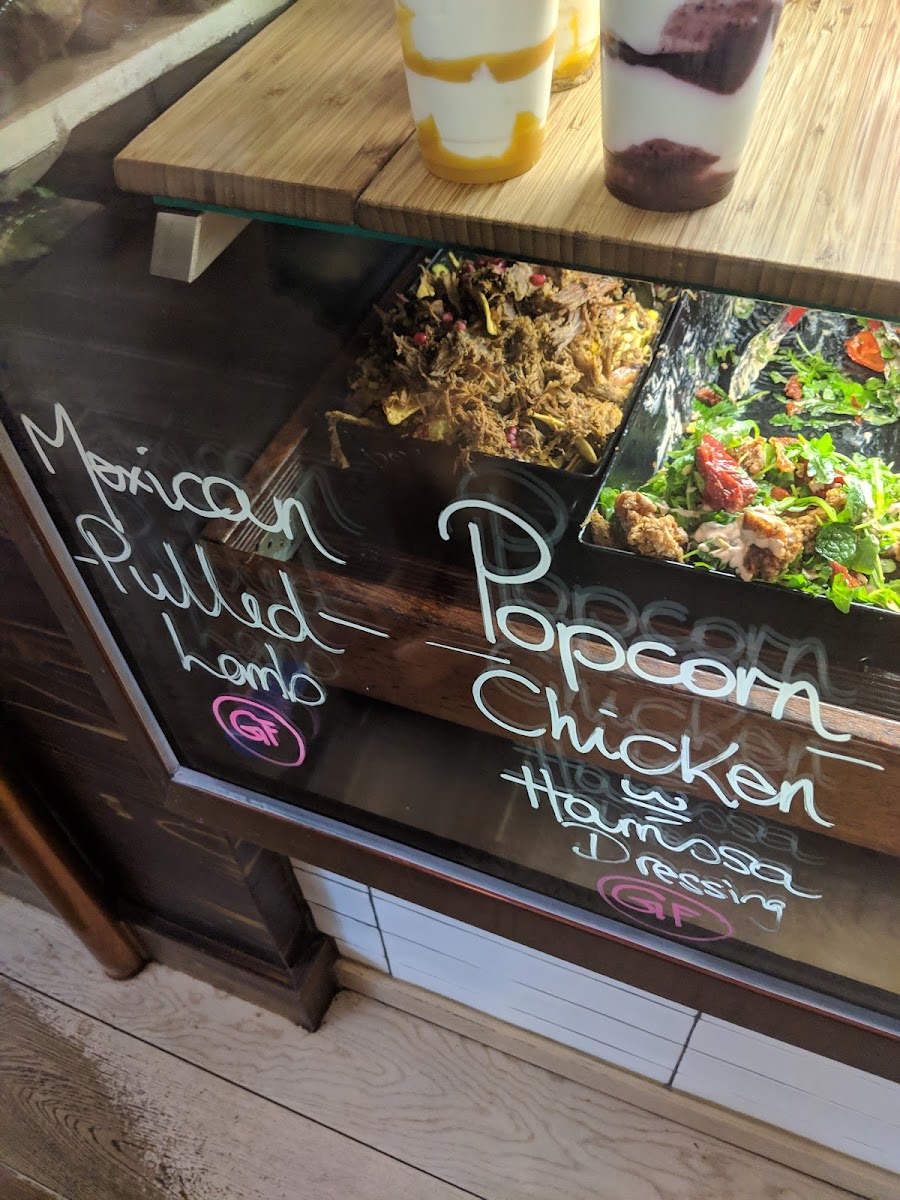 Mexican
Pulled
Lamb
GF
Popcorn
Chicken
w
Hamissa
Dressing
GF